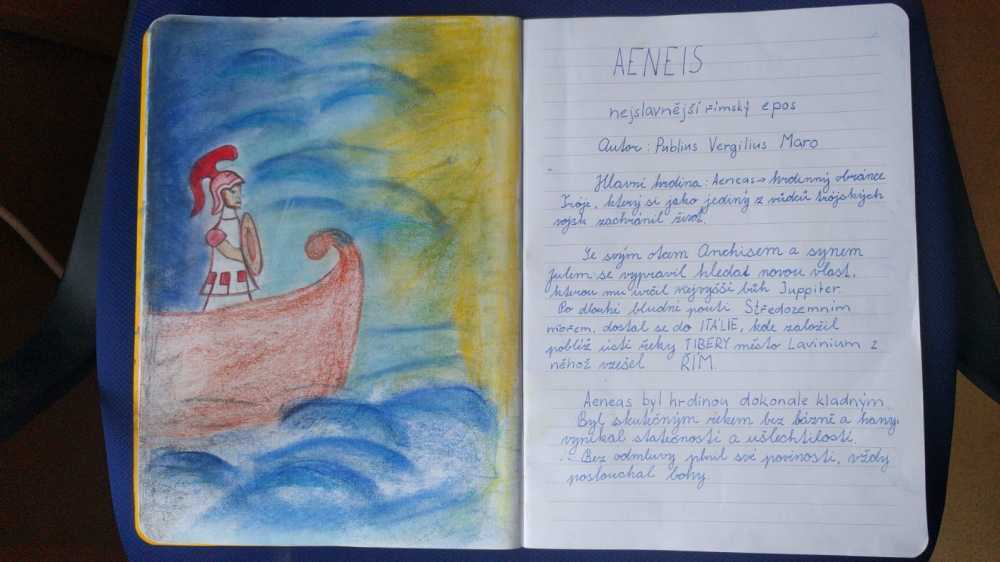 AENEIS
nejslavnější římský epos
Autor: Publius Vergilius Maro
Hlavní hrdina: Aeneas → hrdinný obránce
Troje, který si jako jediný z vůdců trójských
vojsk zachránil život.
Se svým otcem Anchisem a synem
Julem se vypravil hledat novou vlast,
kterou mu určil nejvyšší bůh Juppiter.
Po dlouhé bludné pouti Středozemním
mořem, dostal se do ITÁLIE, kde založil
poblíž ústí řeky TIBERY město Lavinium z
něhož vzešel ŘÍM.
Aeneas byl hrdinou dokonale kladným.
Byl skutečným rekem bez bázně a hany,
vynikal statečností a ušlechtilostí.
Bez odmluvy plnil své povinosti, vždy
poslouchal bohy.